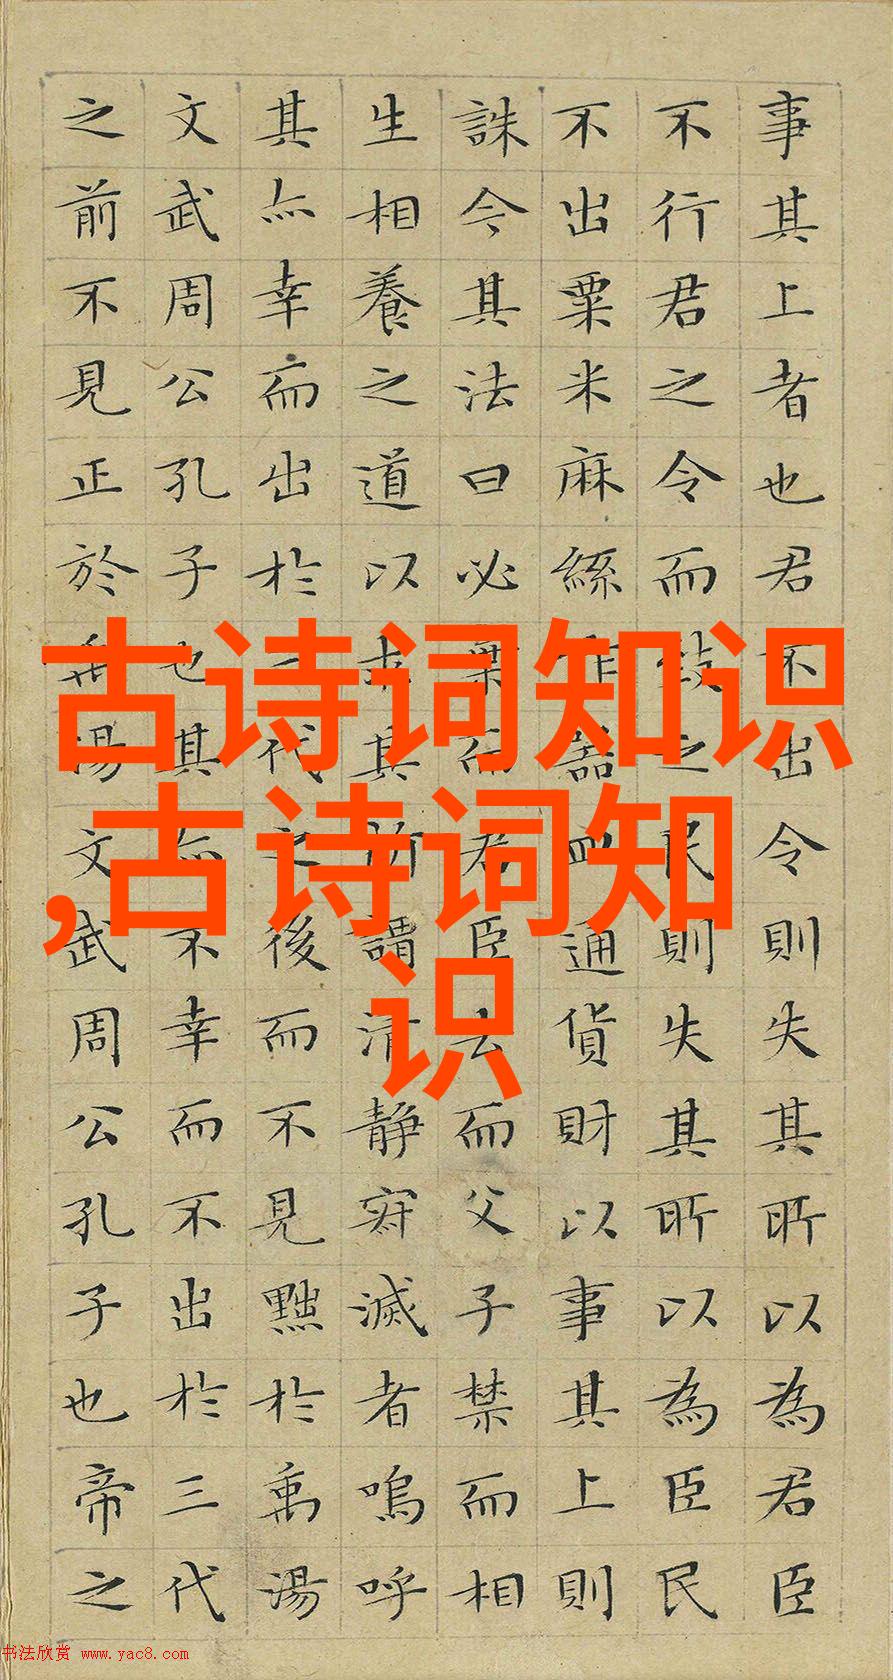 事其上者也君不出令則失其所以為君臣
不行君之令而致之民則失其所以為臣民
不出粟米麻絲作器皿通貨財以事其上則
誅今其法曰必棄而君臣去而父子禁而相
生相養之道以求其所謂清静寂滅者嗚呼
其亦幸而出於三代之後而不見黜於禹湯
文武周公孔子也其亦不幸而不出於三代
之前不見正於禹湯文武周公孔子也帝之
古诗词知识
,古诗词知
识
书法欣赏 www.yac8.com